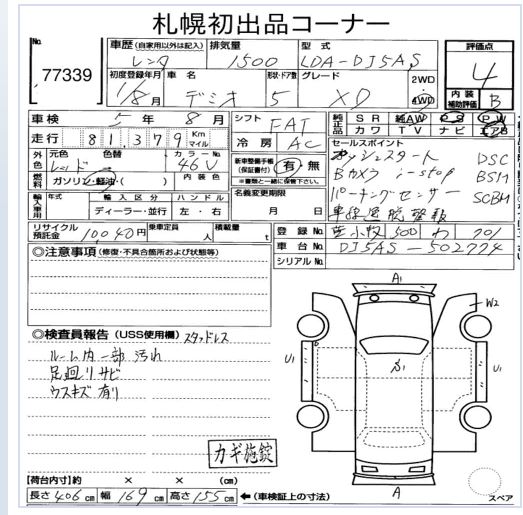 札幌初出品コーナー
No. 77339
車歴 (自家用以外は記入) レンタ
排気量 1500
型式 LDA-DJ5AS
評価点 4
初度登録年月 1/8月
車名 デミオ
形状・ドア数 5
グレード XD
2WD
4WD
内装補助評価 B
車検 5年 8月
シフト FAT
純正品 SR 純AW PS PW
カワ TV ナビ エアB
走行 81,379 Km マイル
冷房 AC
セールスポイント
プッシュスタート DSC
Bカメラ i-stop BSM
パーキングセンサー SCBM
車線逸脱警報
外色 元色 レッド 色替
カラーNo. 46V
新車整備手帳(保証書付) 有・無
※書類と一緒に保管下さい。
燃料 ガソリン・軽油・( )
内装色
名義変更期限 月 日
輸入車用 年式
輸入区分 ディーラー・並行
ハンドル 左・右
リサイクル預託金 10040円
乗車定員 人
積載量 t
登録No. 苫小牧 500 わ 701
車台No. DJ5AS-502774
シリアルNo.
◎注意事項 (修復・不具合箇所および状態等)
◎検査員報告 (USS使用欄) スタッドレス
ルーム内一部汚れ
足廻りサビ
ウスキズ有り
カギ施錠
A1
W2
U1
S1
U1
A
スペア
【荷台内寸】約 × × (cm)
長さ 406 cm 幅 169 cm 高さ 155 cm ←(車検証上の寸法)